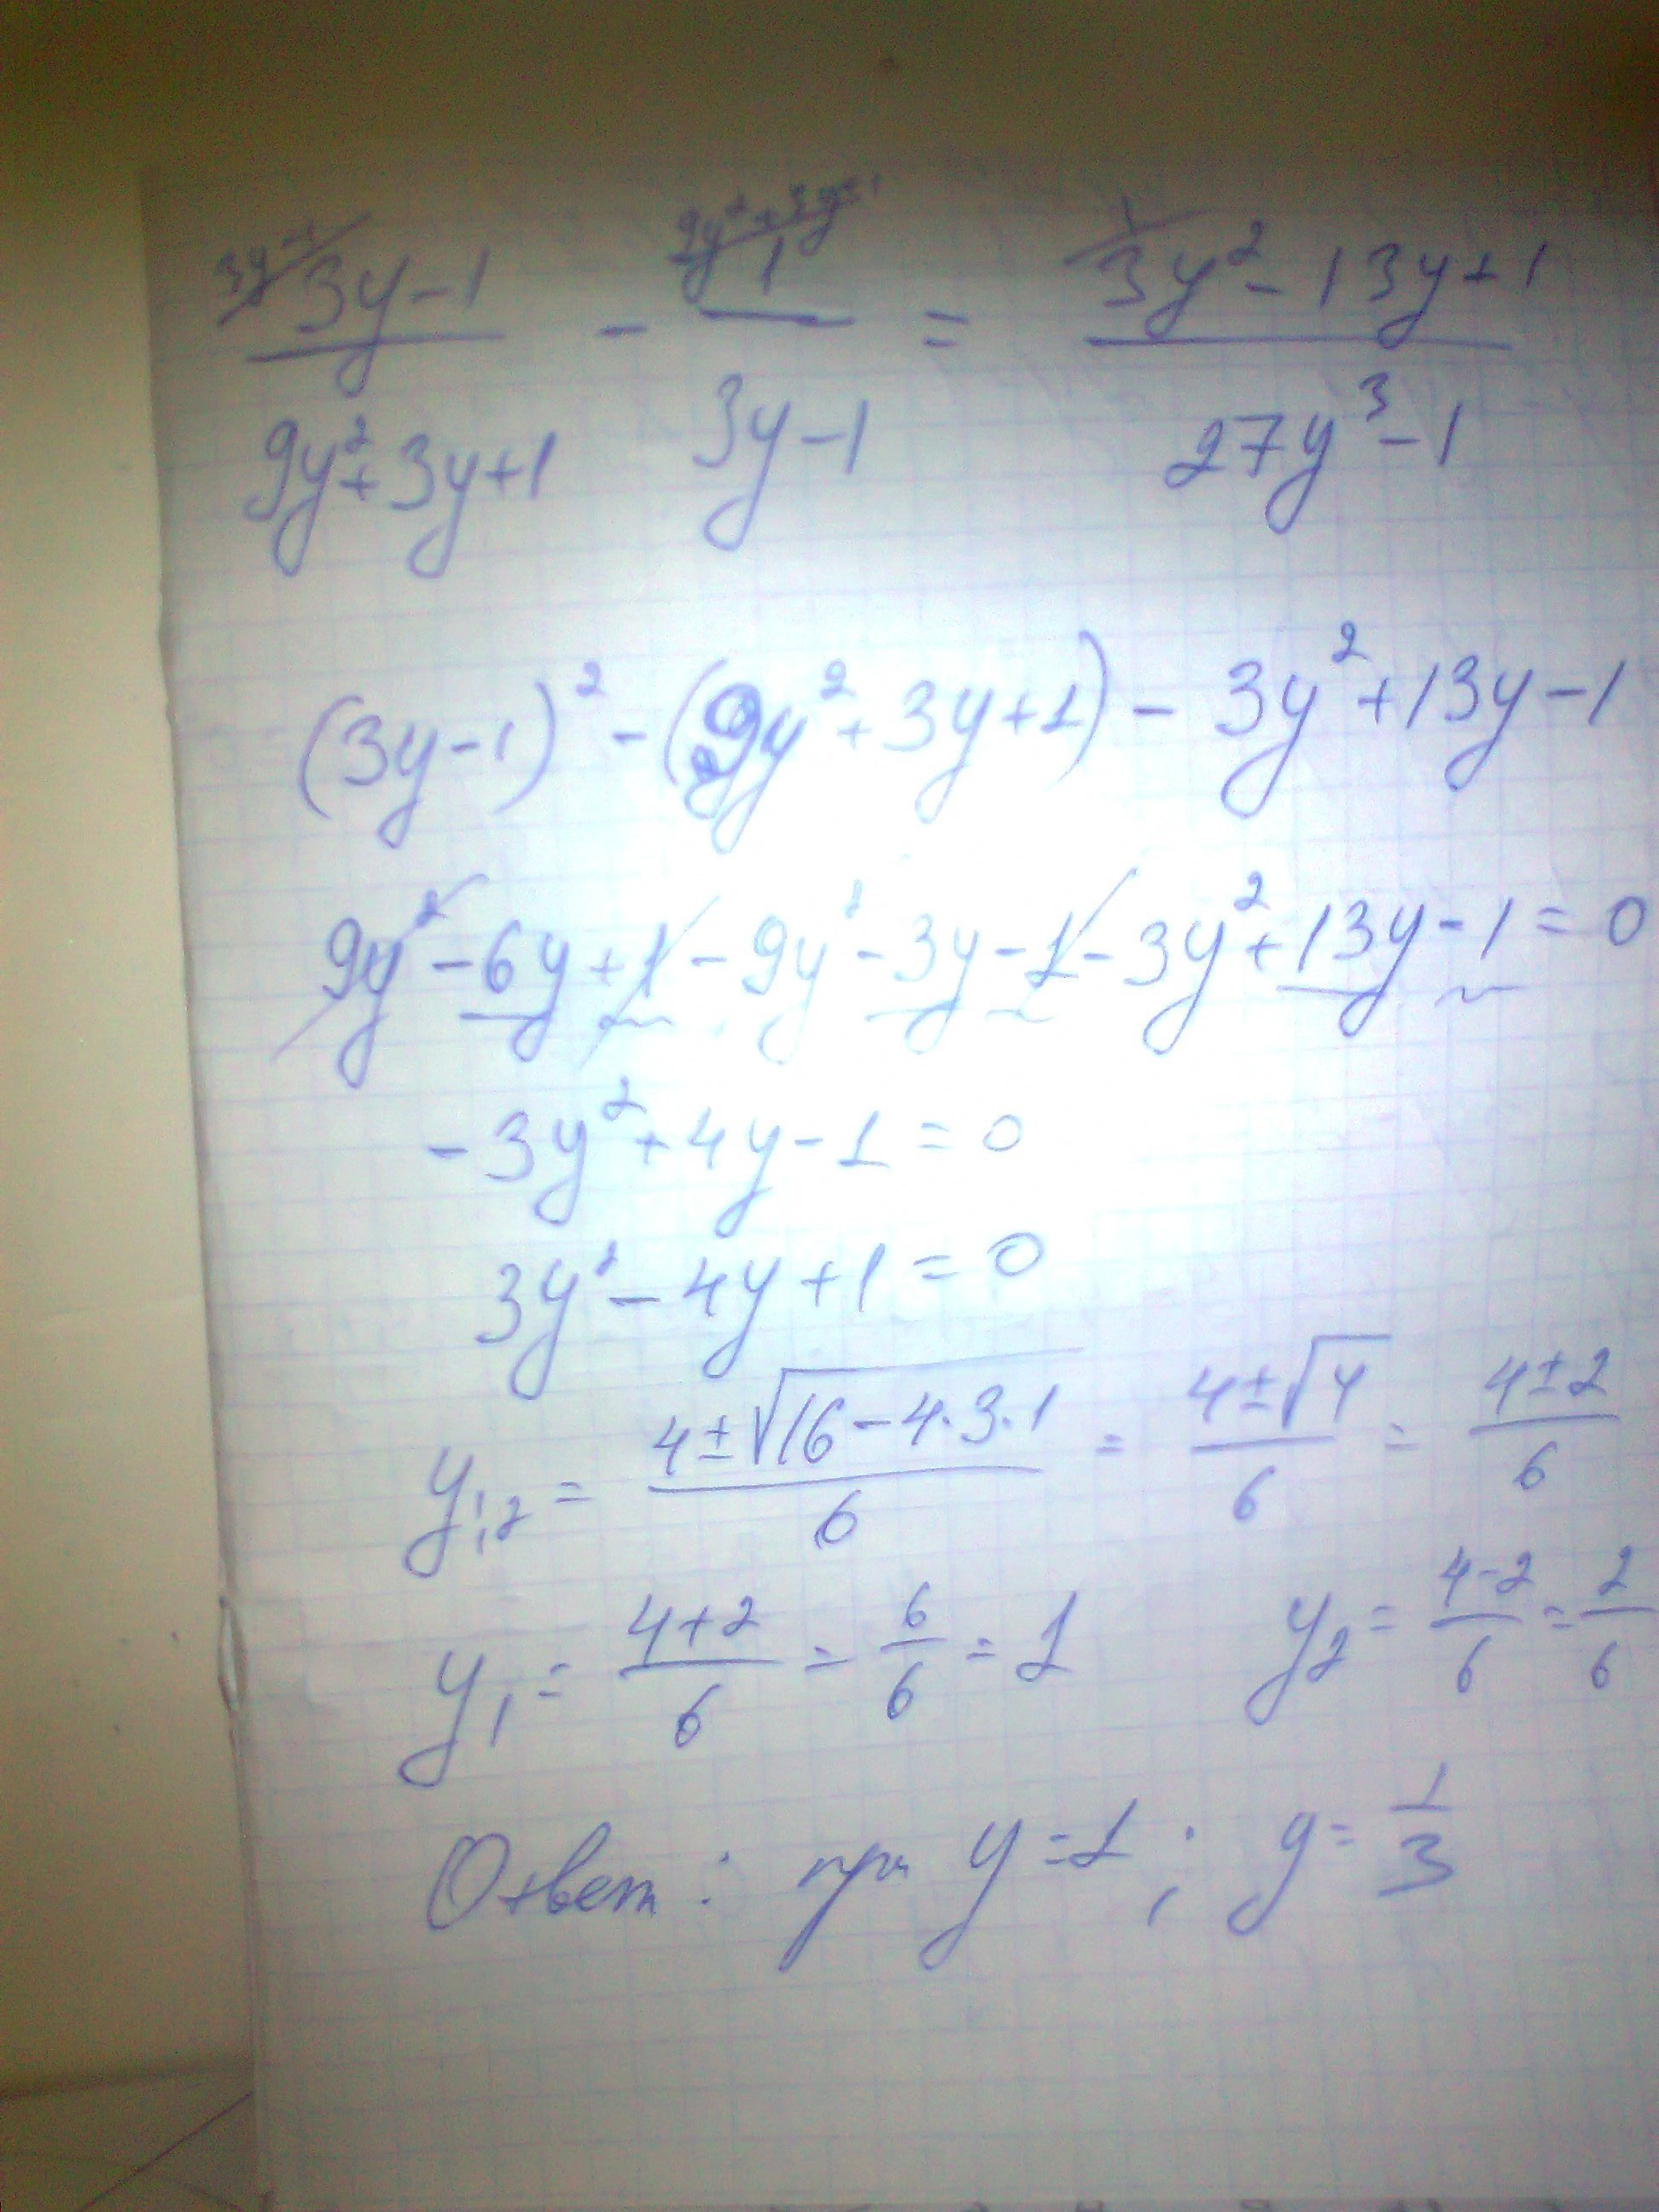 3y-1 9y²+3y+1 1
(3y-1)/(9y²+3y+1) - 1/(3y-1) = (3y²-13y+1)/(27y³-1)
(3y-1)² - (9y²+3y+1) - 3y²+13y-1
9y²-6y+1-9y²-3y-1-3y²+13y-1=0
-3y²+4y-1=0
3y²-4y+1=0
y₁,₂ = (4±√(16-4·3·1))/6 = (4±√4)/6 = (4±2)/6
y₁ = (4+2)/6 = 6/6 = 1 y₂ = (4-2)/6 = 2/6
Ответ: при y=1; y=1/3